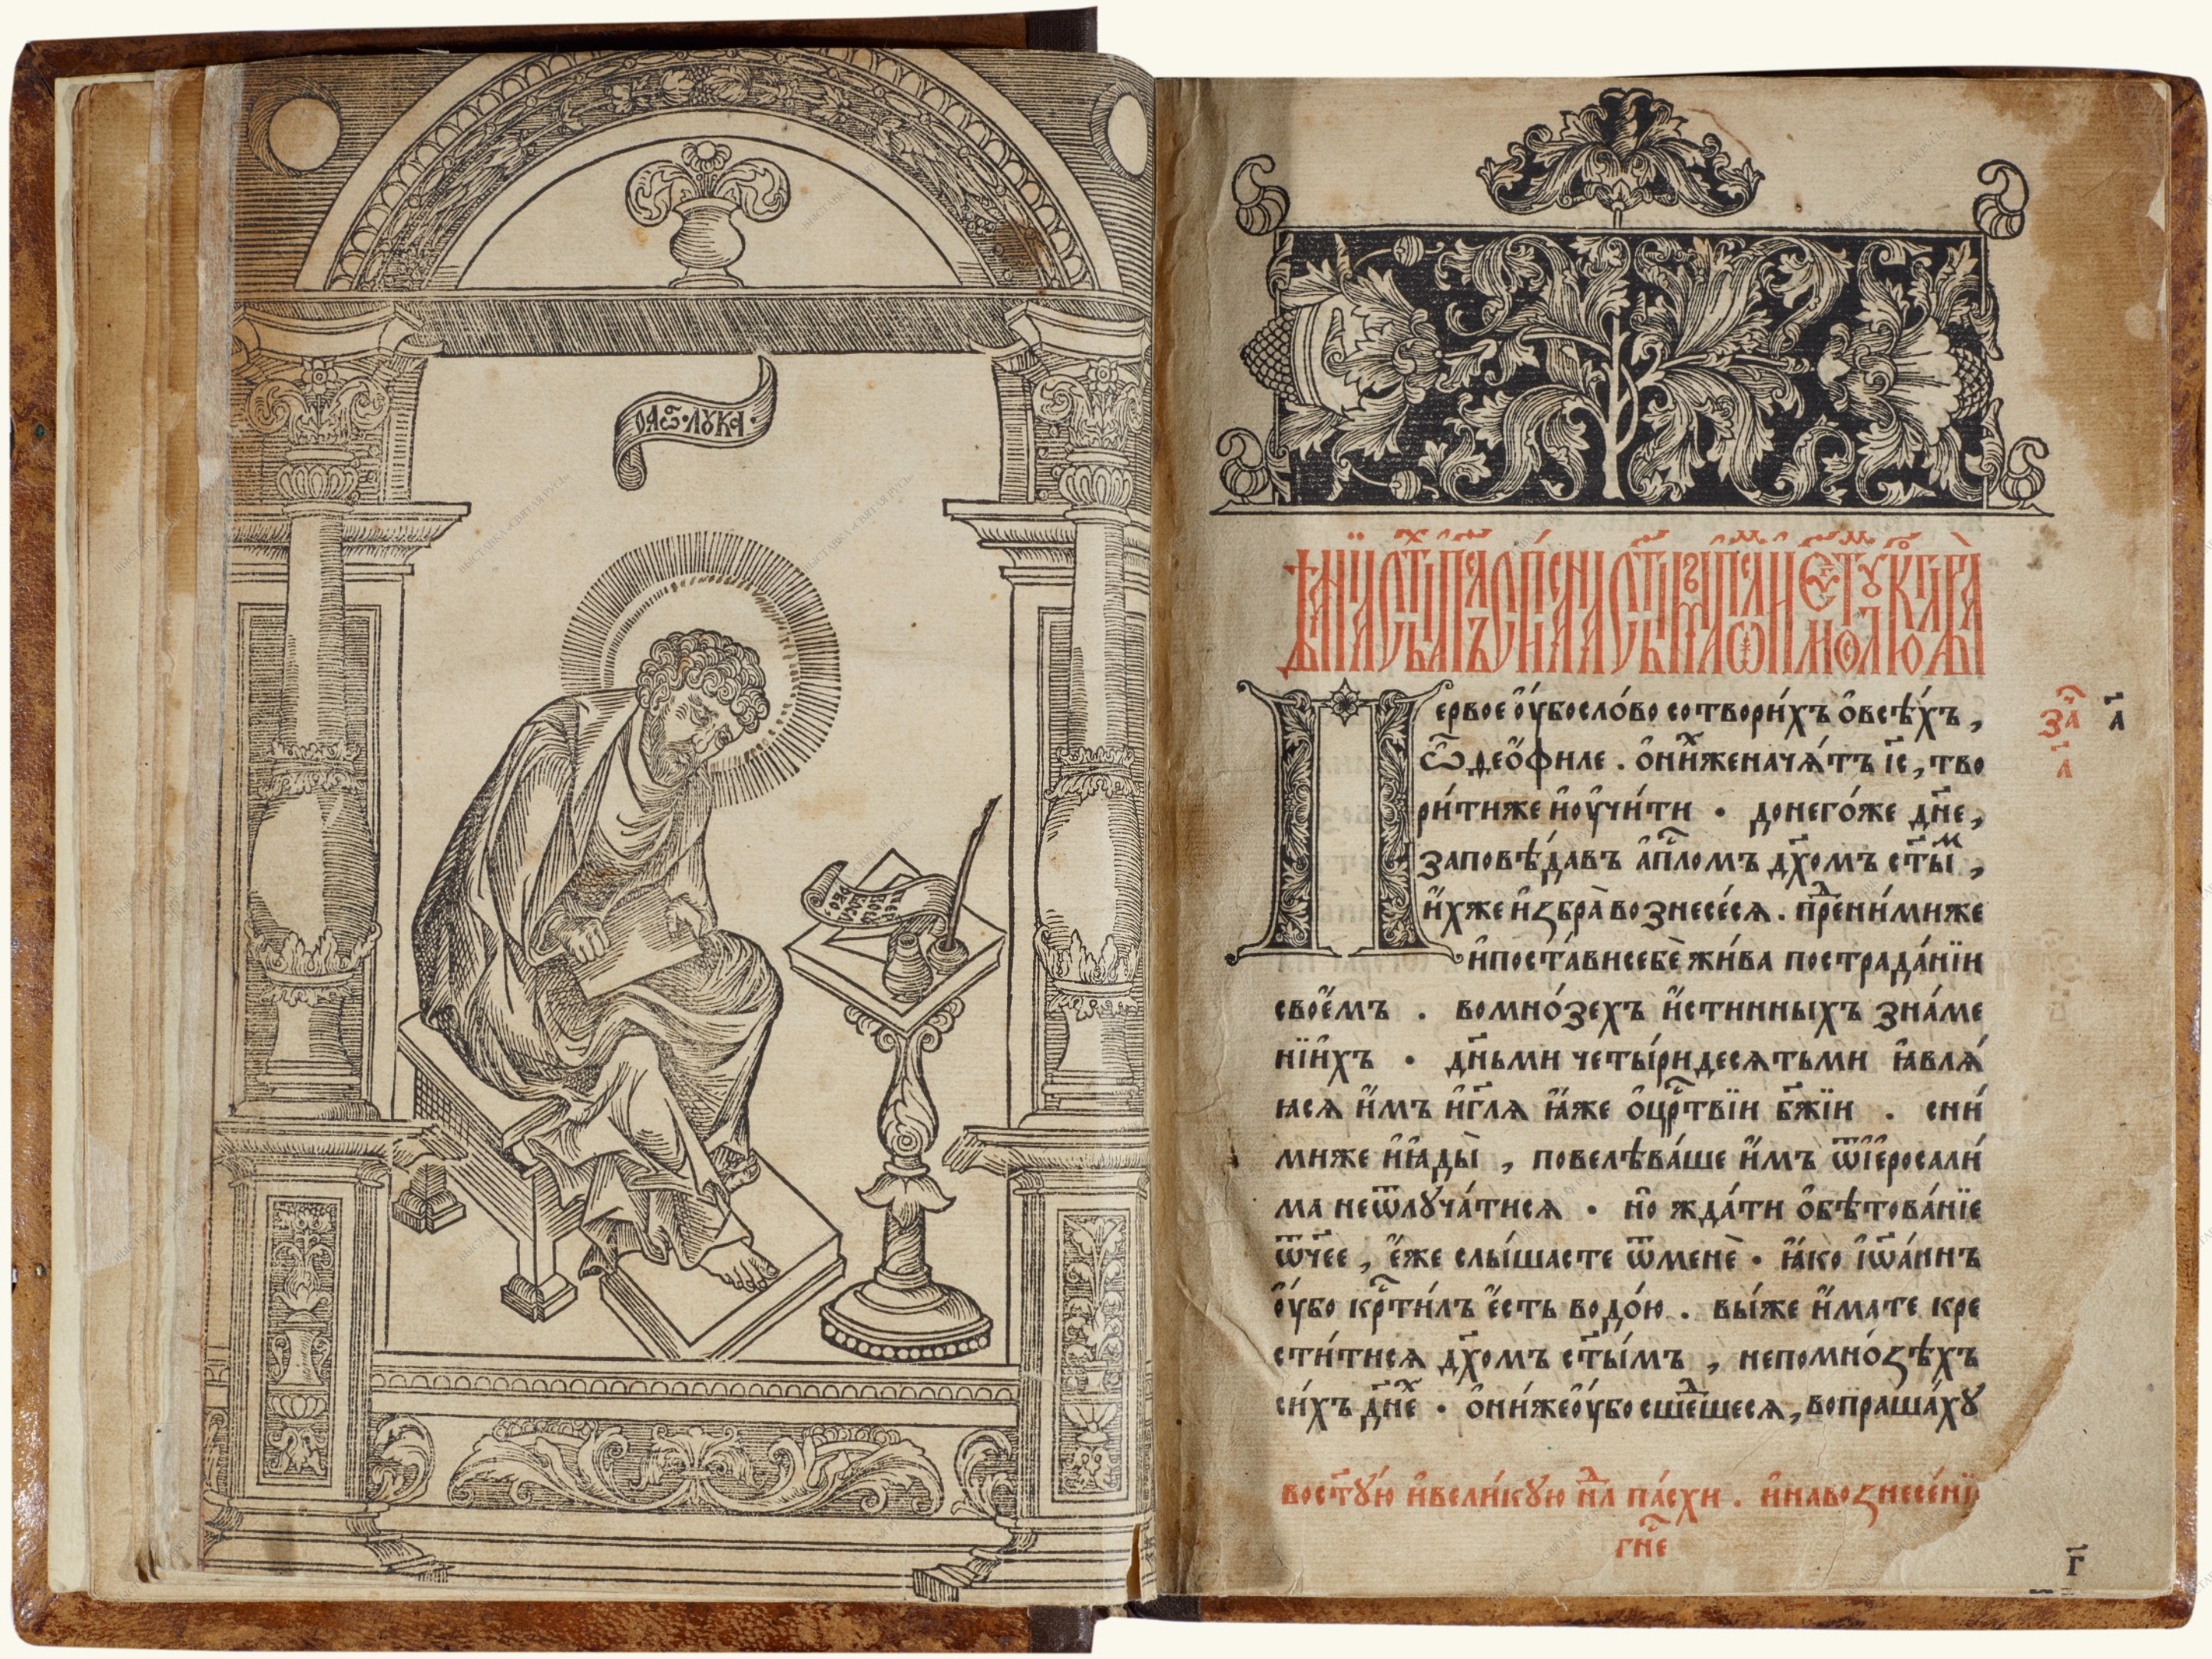 ѻаⷢ҇ лꙋка
Первое ᲂу҆́бо сло́во сотвори́хъ ѻ҆ всѣ́хъ,
ѽ де́ѻ҆филе . ѻ҆ ни́хже нача́тъ і҆с҃, тво
ри́ти же и҆ ᲂу҆чи́ти . до него́же дн҃е,
заповѣ́давъ а҆пⷭ҇ломъ дх҃омъ ст҃ыⷨ ,
и҆́хже и҆ꙁбра̀ вознесе́сѧ . преⷣ ни́миже
и҆ поста́ви себѐ жи́ва по страда́нїи
свое҆́мъ . во мно́зехъ и҆́стинныхъ зна́ме
нїи҆хъ . дн҃ьми четы́ридесѧтьми ꙗ҆влѧ́
ꙗсѧ и҆́мъ и҆ гл҃ѧ ꙗ҆́же ѻ҆ црⷭ҇твїи бж҃їи . с ни́
миже и҆ ꙗ҆ды̀ , повелѣва́ше и҆́мъ ѿ і҆еросали́
ма не ѿлꙋча́тисѧ . но̑ жда́ти ѻ҆бѣтова́нїе
ѿч҃ее , е҆́же слы́шасте ѿ менѐ . ꙗ҆́ко і҆ѡа́ннъ
ᲂу҆́бо крⷭ҇ти́лъ е҆́сть водо́ю . вы́ же и҆́мате кре
сти́тисѧ дх҃омъ ст҃ы́мъ , не по мно́ꙁѣхъ
си́хъ дн҃еⷯ . ѻ҆ни́же ᲂу҆́бо сшеⷣшесѧ, вопраша́хꙋ
заⷱ҇
а҃
а҃
во ст҃ꙋ́ю и҆ вели́кꙋю нлⷣ па́схи . и҆ на воꙁнесе́нїе
гнⷭ҇е
г҃